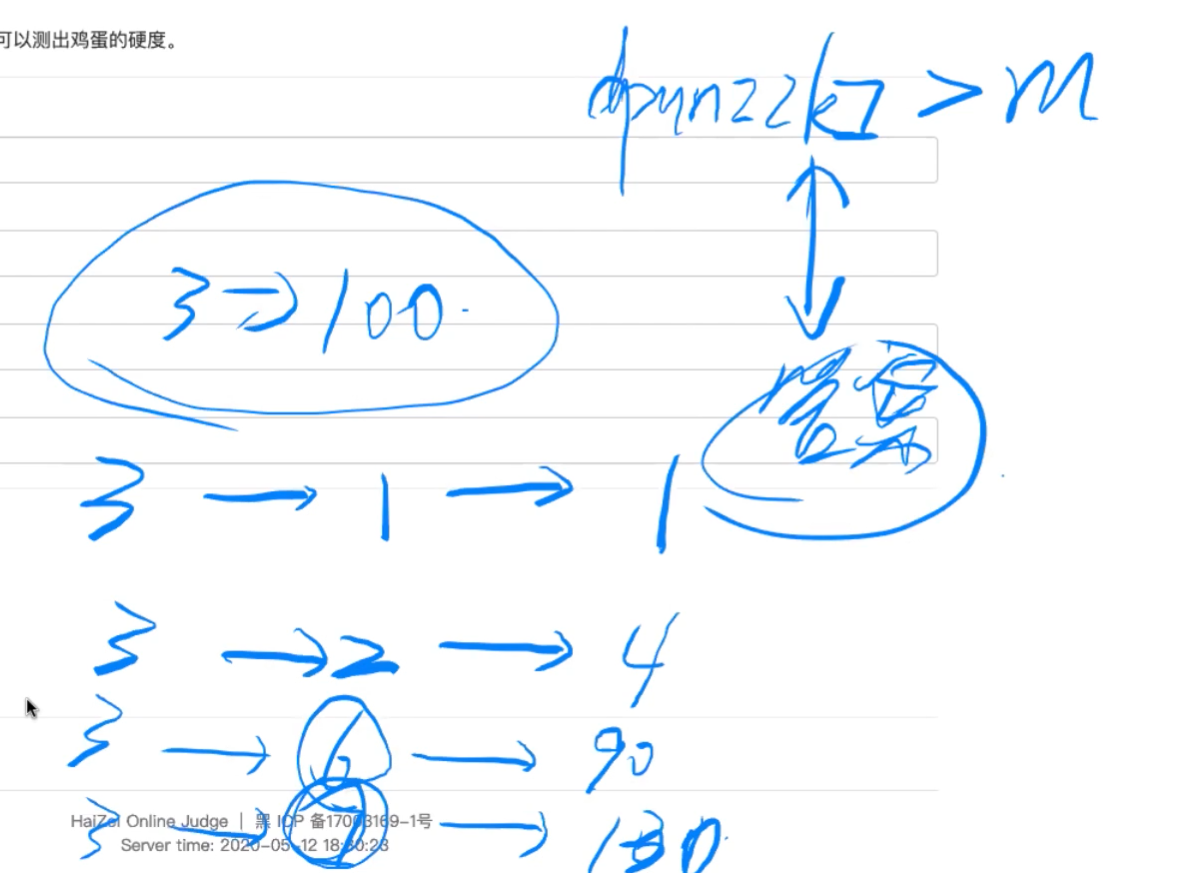 可以测出鸡蛋的硬度。
dp[n][k] > m
3 => 100.
答案
3 → 1 → 1
3 → 2 → 4
3 → 6 → 90
3 → 7 → 130
HaiZei Online Judge | 黑 ICP 备17003169-1号
Server time: 2020-05-12 18:30:23